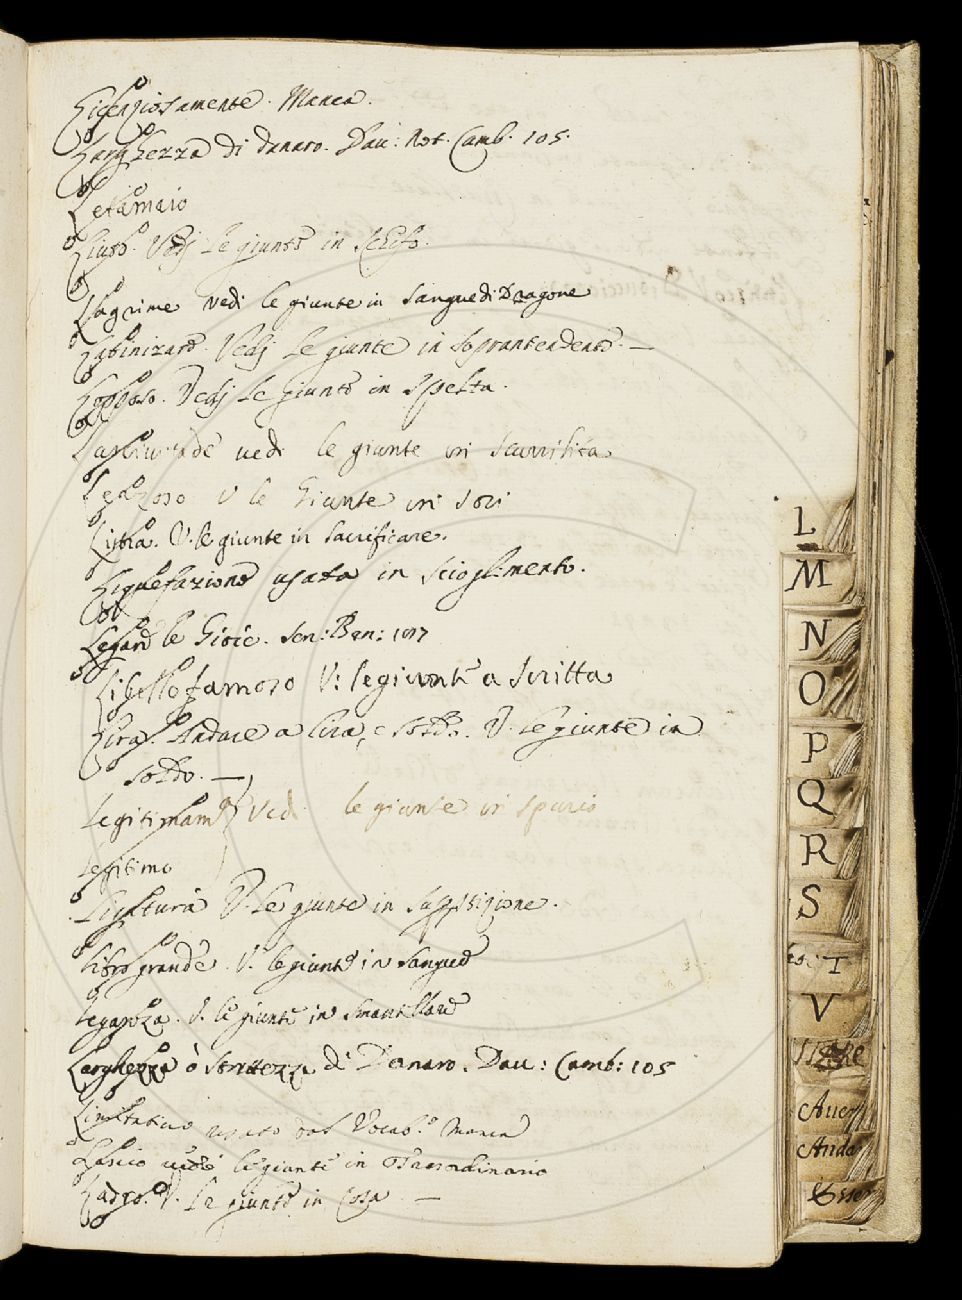 Licenziosamente. Manca.
Larghezza di danaro. Dav: Not. Camb. 105.
Letamaio
Liuto. Vedj Le giunte in Schifo.
Lagrime vedi le giunte in Sangue di Dragone
Vedj Le giunte in Soprantendente. —
Vedj Le giunte in Spelta.
vedi le giunte in Scurrilità
V le Giunte in Sori
Libra. V. le giunte in Sacrificare.
Liquefazione usata in Scioglimento.
Legare le Gioie. Sen: Ben: 107
Libello famoso V: le giunte a Scritta
Lira. Andare a lira, e soldo. V. Le giunte in
Soldo. —
Legitimam.e Vedi le giunte in Spurio
Legitimo
Ligatura V. Le giunte in
Libro grande. V. le giunte in Sangue
V. le giunte in Smantellare
Larghezza ò Strettezza di Danaro. Dav: Camb: 105
Limitativo usato dal Vocab.o Manca
Lascio vedi le giunte in Straordinario
Ladro. V. Le giunte in Cosa —
L
M
N
O
P
Q
R
S
T
V
Stare
Aver
Anda
Esser